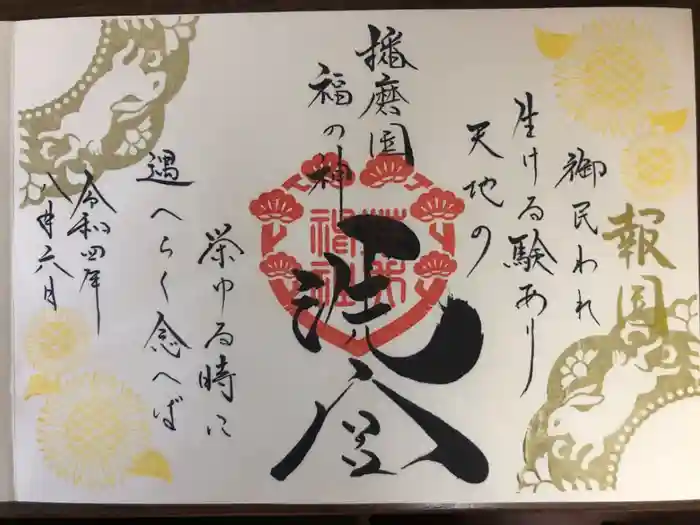 報国
御民われ
生ける験あり
天地の
播磨国
福の神
栄ゆる時に
遇へらく念へば
令和四年
八月六日